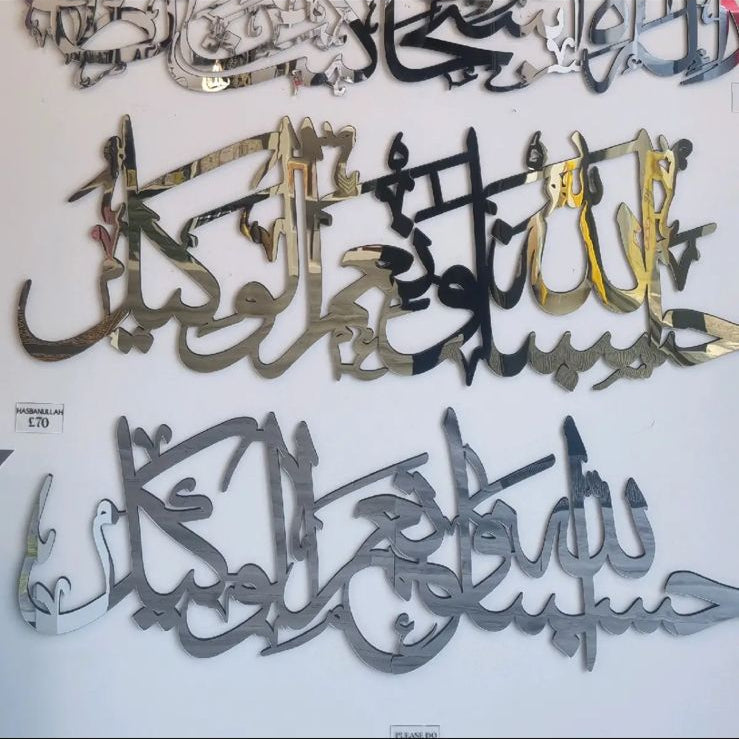 حسبنا الله ونعم الوكيل
HASBANULLAH
£70
حسبنا الله ونعم الوكيل
PLEASE DO